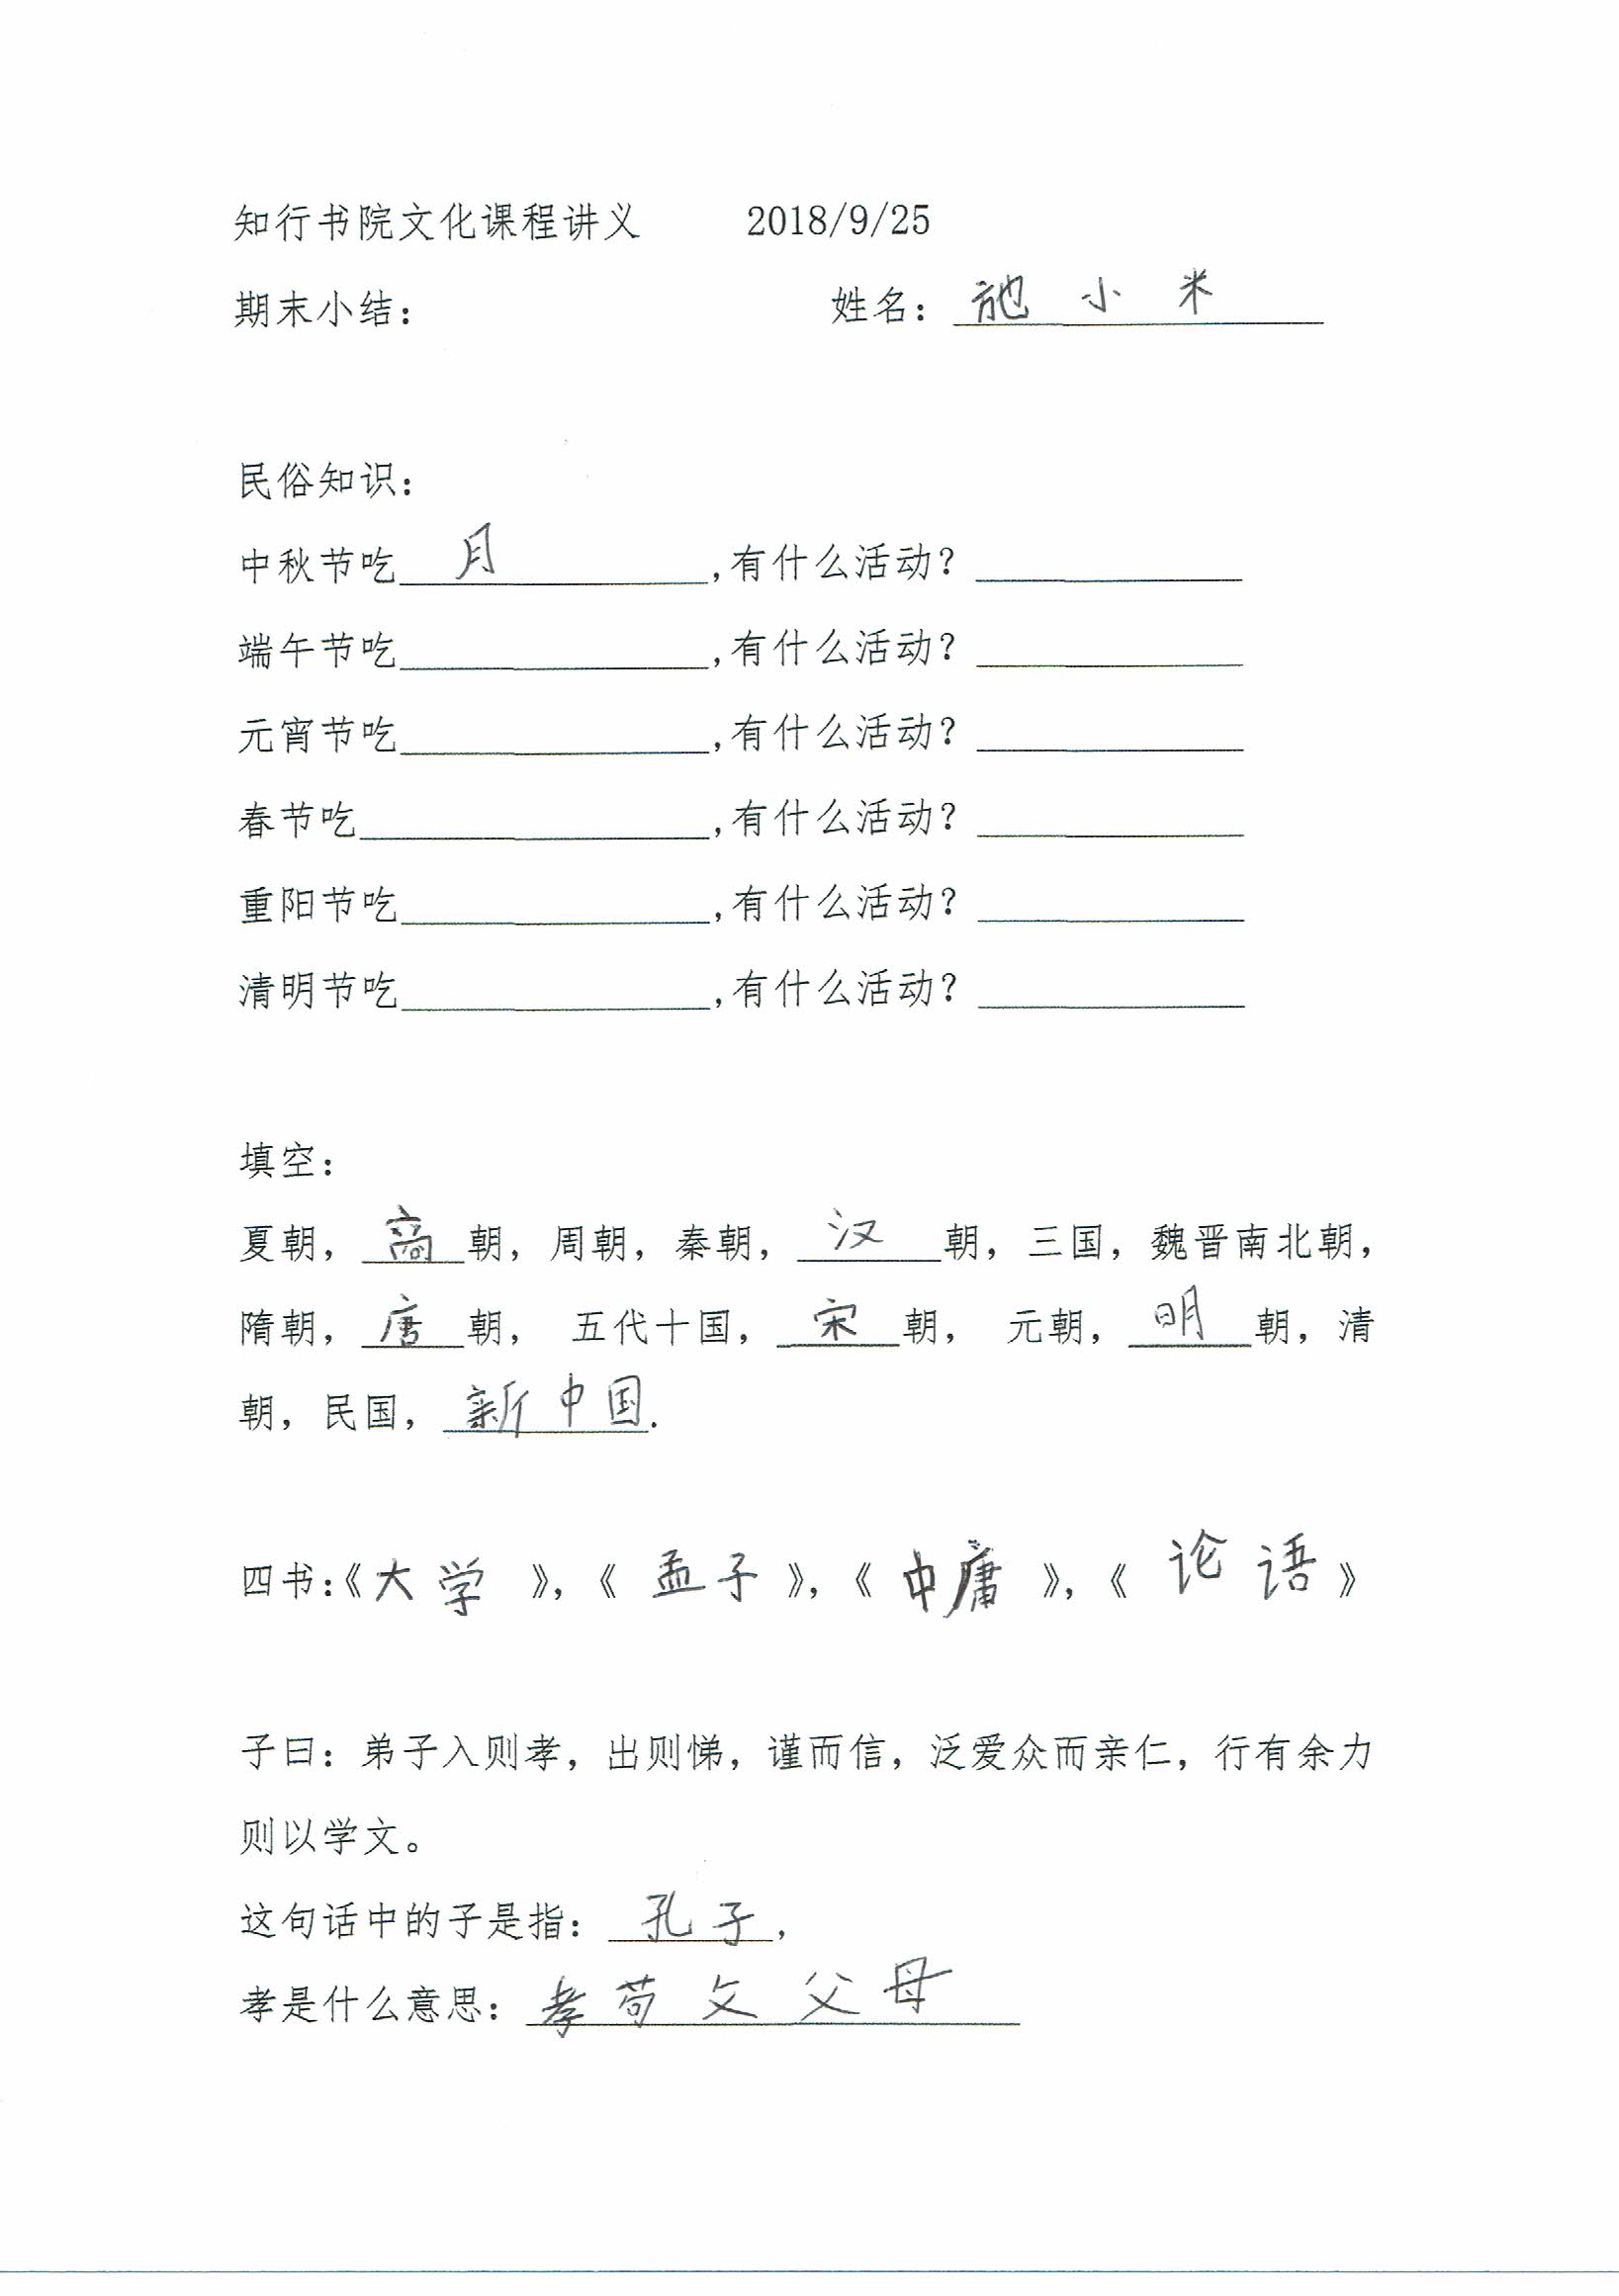 知行书院文化课程讲义 2018/9/25
期末小结： 姓名：施小米
民俗知识：
中秋节吃月,有什么活动？
端午节吃,有什么活动？
元宵节吃,有什么活动？
春节吃,有什么活动？
重阳节吃,有什么活动？
清明节吃,有什么活动？
填空：
夏朝，商朝，周朝，秦朝，汉朝，三国，魏晋南北朝，
隋朝，唐朝， 五代十国，宋朝， 元朝，明朝，清
朝，民国，新中国.
四书：《大学》，《孟子》，《中庸》，《论语》
子曰：弟子入则孝，出则悌，谨而信，泛爱众而亲仁，行有余力
则以学文。
这句话中的子是指：孔子，
孝是什么意思：孝苟攵父母